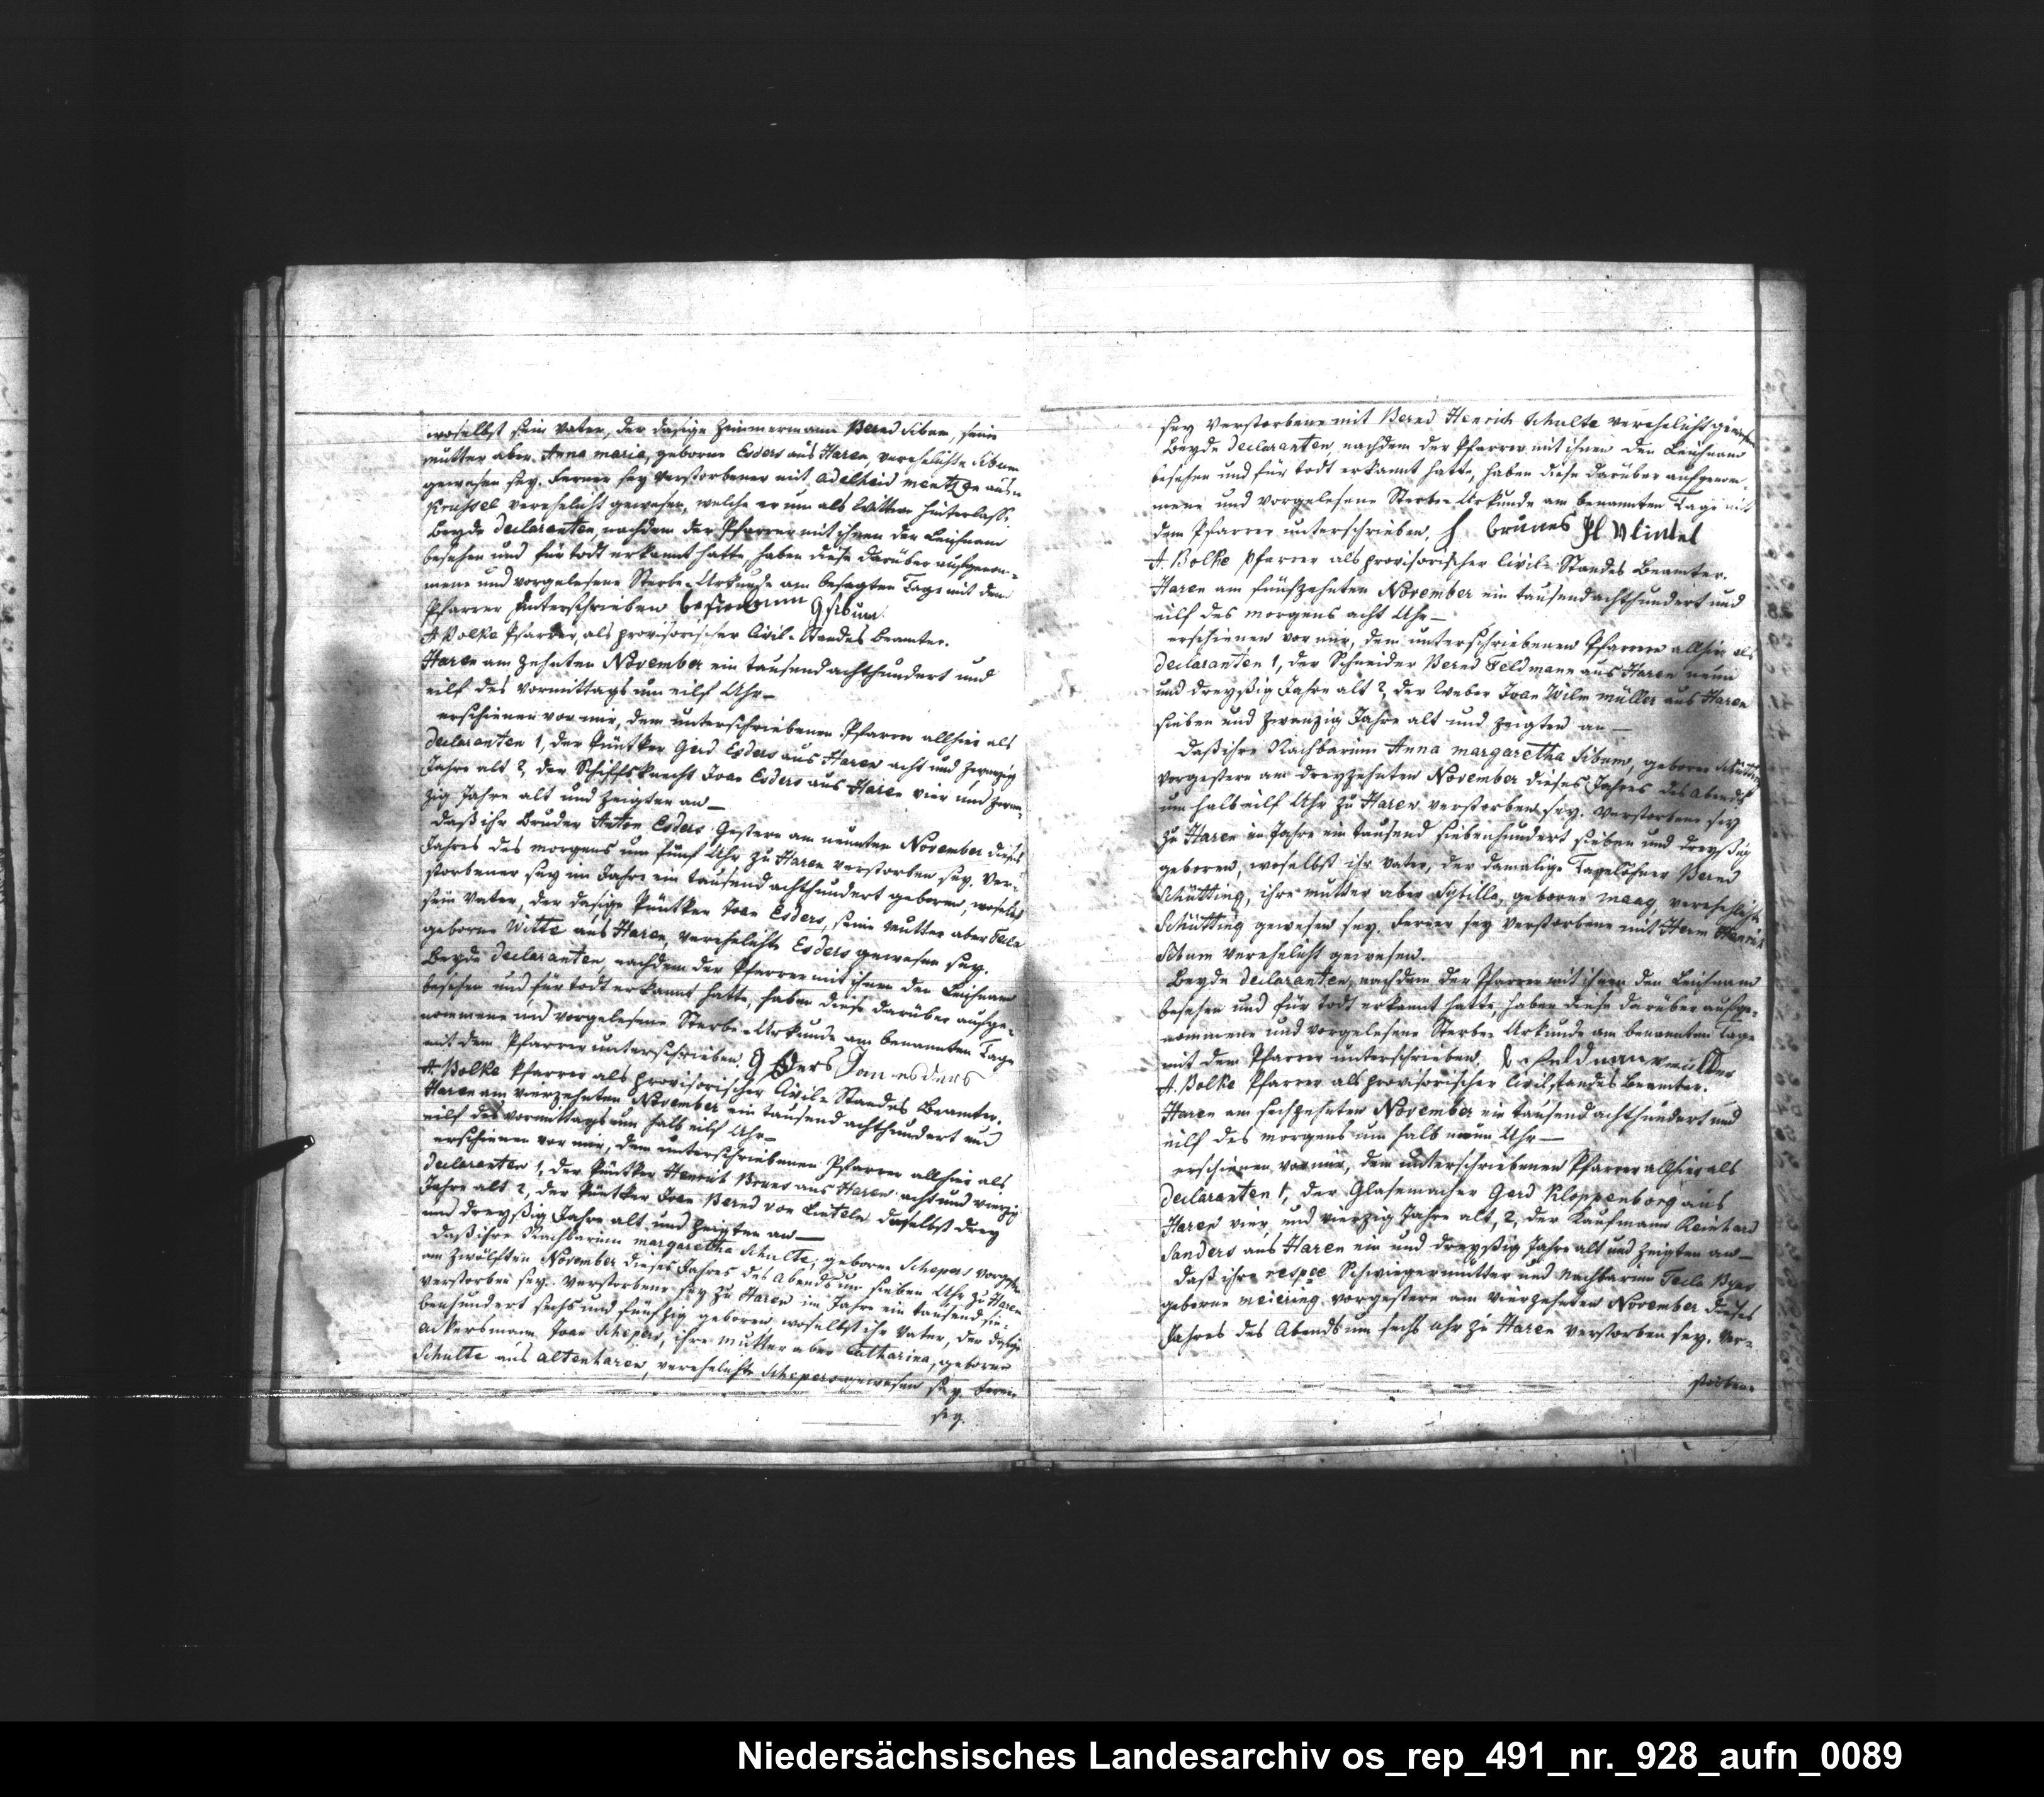 woselbst sein Vater, der dasige Zimmermann Bernd Sibum, seine
Mutter aber Anna Maria, geborne Esders aus Haren, verehelichte Sibum
gewesen sey. Ferner sey Verstorbener mit Adelheid aus
verehelicht gewesen, welche er nun als Wittwe hinterlasse.
Beyde Declaranten, nachdem der Pfarrer mit ihnen den Leichnam
besehen und für todt erkannt hatte, haben diese darüber aufgenom-
mene und vorgelesene Sterbe-Urkunde am besagten Tage mit dem
Pfarrer unterschrieben G sibum
A Bolke Pfarrer, als provisorischer Civil-Standes Beamter.
Haren am zehnten November ein tausend achthundert und
eilf des Vormittags um eilf Uhr—
erschienen vor mir, dem unterschriebenen Pfarrer allhier als
Declaranten 1, der Püntker Gerd Esders aus Haren acht und zwanzig
Jahre alt 2, der Schiffsknecht Joan Esders aus Haren vier und zwan-
zig Jahre alt und zeigten an—
daß ihr Bruder Anton Esders gestern am neunten November dieses
Jahres des Morgens um fünf Uhr zu Haren verstorben sey. Ver-
storbener sey im Jahre ein tausend achthundert geboren, woselbst
sein Vater, der dasige Püntker Joan Esders, seine Mutter aber Tecla
geborne Witte aus Haren, verehelichte Esders gewesen sey.
Beyde Declaranten, nachdem der Pfarrer mit ihnen den Leichnam
besehen und für todt erkannt hatte, haben diese darüber aufge-
nommene und vorgelesene Sterbe-Urkunde am benannten Tage
mit dem Pfarrer unterschrieben. G Esders Jan esders
A. Bolke Pfarrer als provisorischer Civil-Standes Beamter.
Haren am vierzehnten November ein tausend achthundert und
eilf des Vormittags um halb eilf Uhr—
erschienen vor mir, dem unterschriebenen Pfarrer allhier als
Declaranten 1, der Püntker Henrich aus Haren acht und vierzig
Jahre alt 2, der Püntker Joan Bernd von Linteln daselbst drey
und dreyßig Jahre alt und zeigten an—
daß ihre Nachbarinn Margaretha Schulte, geborne Schepers vorgestern
am zwölften November dieses Jahres des Abends um sieben Uhr zu Haren
verstorben sey. Verstorbene sey zu Haren im Jahre ein tausend sie-
benhundert sechs und fünfzig geboren, woselbst ihr Vater, der dasige
Ackersmann Joan Schepers, ihre Mutter aber Catharina, geborne
Schulte aus Altenharen, verehelichte Schepers gewesen sey. Ferner
sey
sey Verstorbene mit Bernd Henrich Schulte verehelicht gewesen
Beyde Declaranten, nachdem der Pfarrer mit ihnen den Leichnam
besehen und für todt erkannt hatte, haben diese darüber aufgenom-
mene und vorgelesene Sterbe-Urkunde am benannten Tage mit
dem Pfarrer unterschrieben.
A. Bolke Pfarrer als provisorischer Civil-Standes Beamter.
Haren am fünfzehnten November ein tausend achthundert und
eilf des Morgens acht Uhr—
erschienen vor mir, dem unterschriebenen Pfarrer allhier als
Declaranten 1, der Schneider Bernd Feldmann aus Haren neun
und dreyßig Jahre alt 2, der Weber Joan Wilm Müller aus Haren
sieben und zwanzig Jahre alt und zeigten an—
daß ihre Nachbarinn Anna Margaretha Sibum, geborne Schütting
vorgestern am dreyzehnten November dieses Jahres des Abends
um halb eilf Uhr zu Haren verstorben sey. Verstorbene sey
zu Haren im Jahre ein tausend siebenhundert sieben und dreyßig
geboren, woselbst ihr Vater, der damalige Tagelöhner Bernd
Schütting, ihre Mutter aber Sybilla, geborne Maag, verehelichte
Schütting gewesen sey. Ferner sey Verstorbene mit Herm Henrich
Sibum verehelicht gewesen.
Beyde Declaranten, nachdem der Pfarrer mit ihnen den Leichnam
besehen und für todt erkannt hatte, haben diese darüber aufge-
nommene und vorgelesene Sterbe-Urkunde am benannten Tage
mit dem Pfarrer unterschrieben. feldman muller
A. Bolke Pfarrer als provisorischer Civilstandes Beamter.
Haren am sechzehnten November ein tausend achthundert und
eilf des Morgens um halb neun Uhr—
erschienen vor mir, dem unterschriebenen Pfarrer allhier als
Declaranten 1, der Glasemacher Gerd Kloppenborg aus
Haren vier und vierzig Jahre alt, 2, der Kaufmann Reinhard
Sanders aus Haren ein und dreyßig Jahre alt und zeigten an—
daß ihre respce Schwiegermutter und Nachbarinn Tecla
geborne Meiering vorgestern am vierzehnten November dieses
Jahres des Abends um sechs Uhr zu Haren verstorben sey. Ver-
storbene
Niedersächsisches Landesarchiv os_rep_491_nr._928_aufn_0089